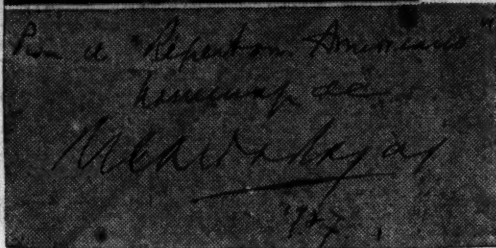 Para el Repertorio Americano
homenaje de
1927